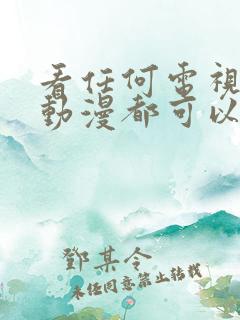 看任何電視
動漫都可以
鄧某令
未任同意禁止转载